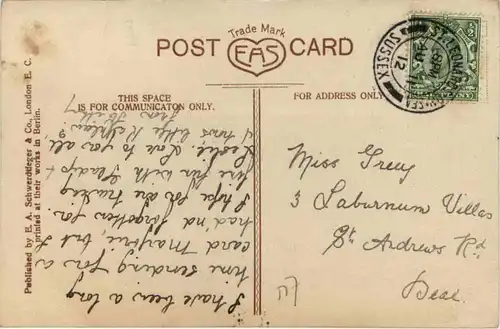 Trade Mark
POST CARD
EAS
THIS SPACE
IS FOR COMMUNICATON ONLY.
FOR ADDRESS ONLY.
Published by E. A. Schwerdtfeger & Co., London E. C.
printed at their works in Berlin.
ST LEONARDS ON SEA
12
SUSSEX
I have been a long
time sending for a
card Marjorie, but I
had'nd forgotten you.
I hope you are having
fine fun with
Leslie. Love to you all,
from
Miss Greey
3 Laburnum Villas
St Andrews Rd
Deal